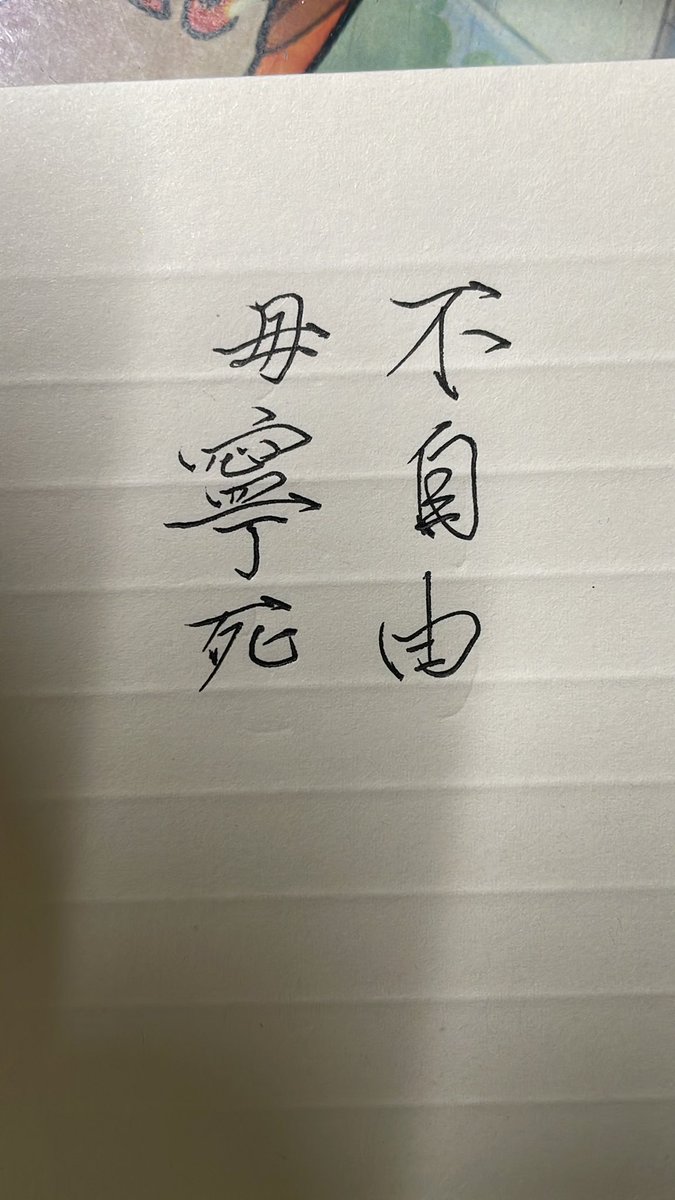 不自由
毋寧死